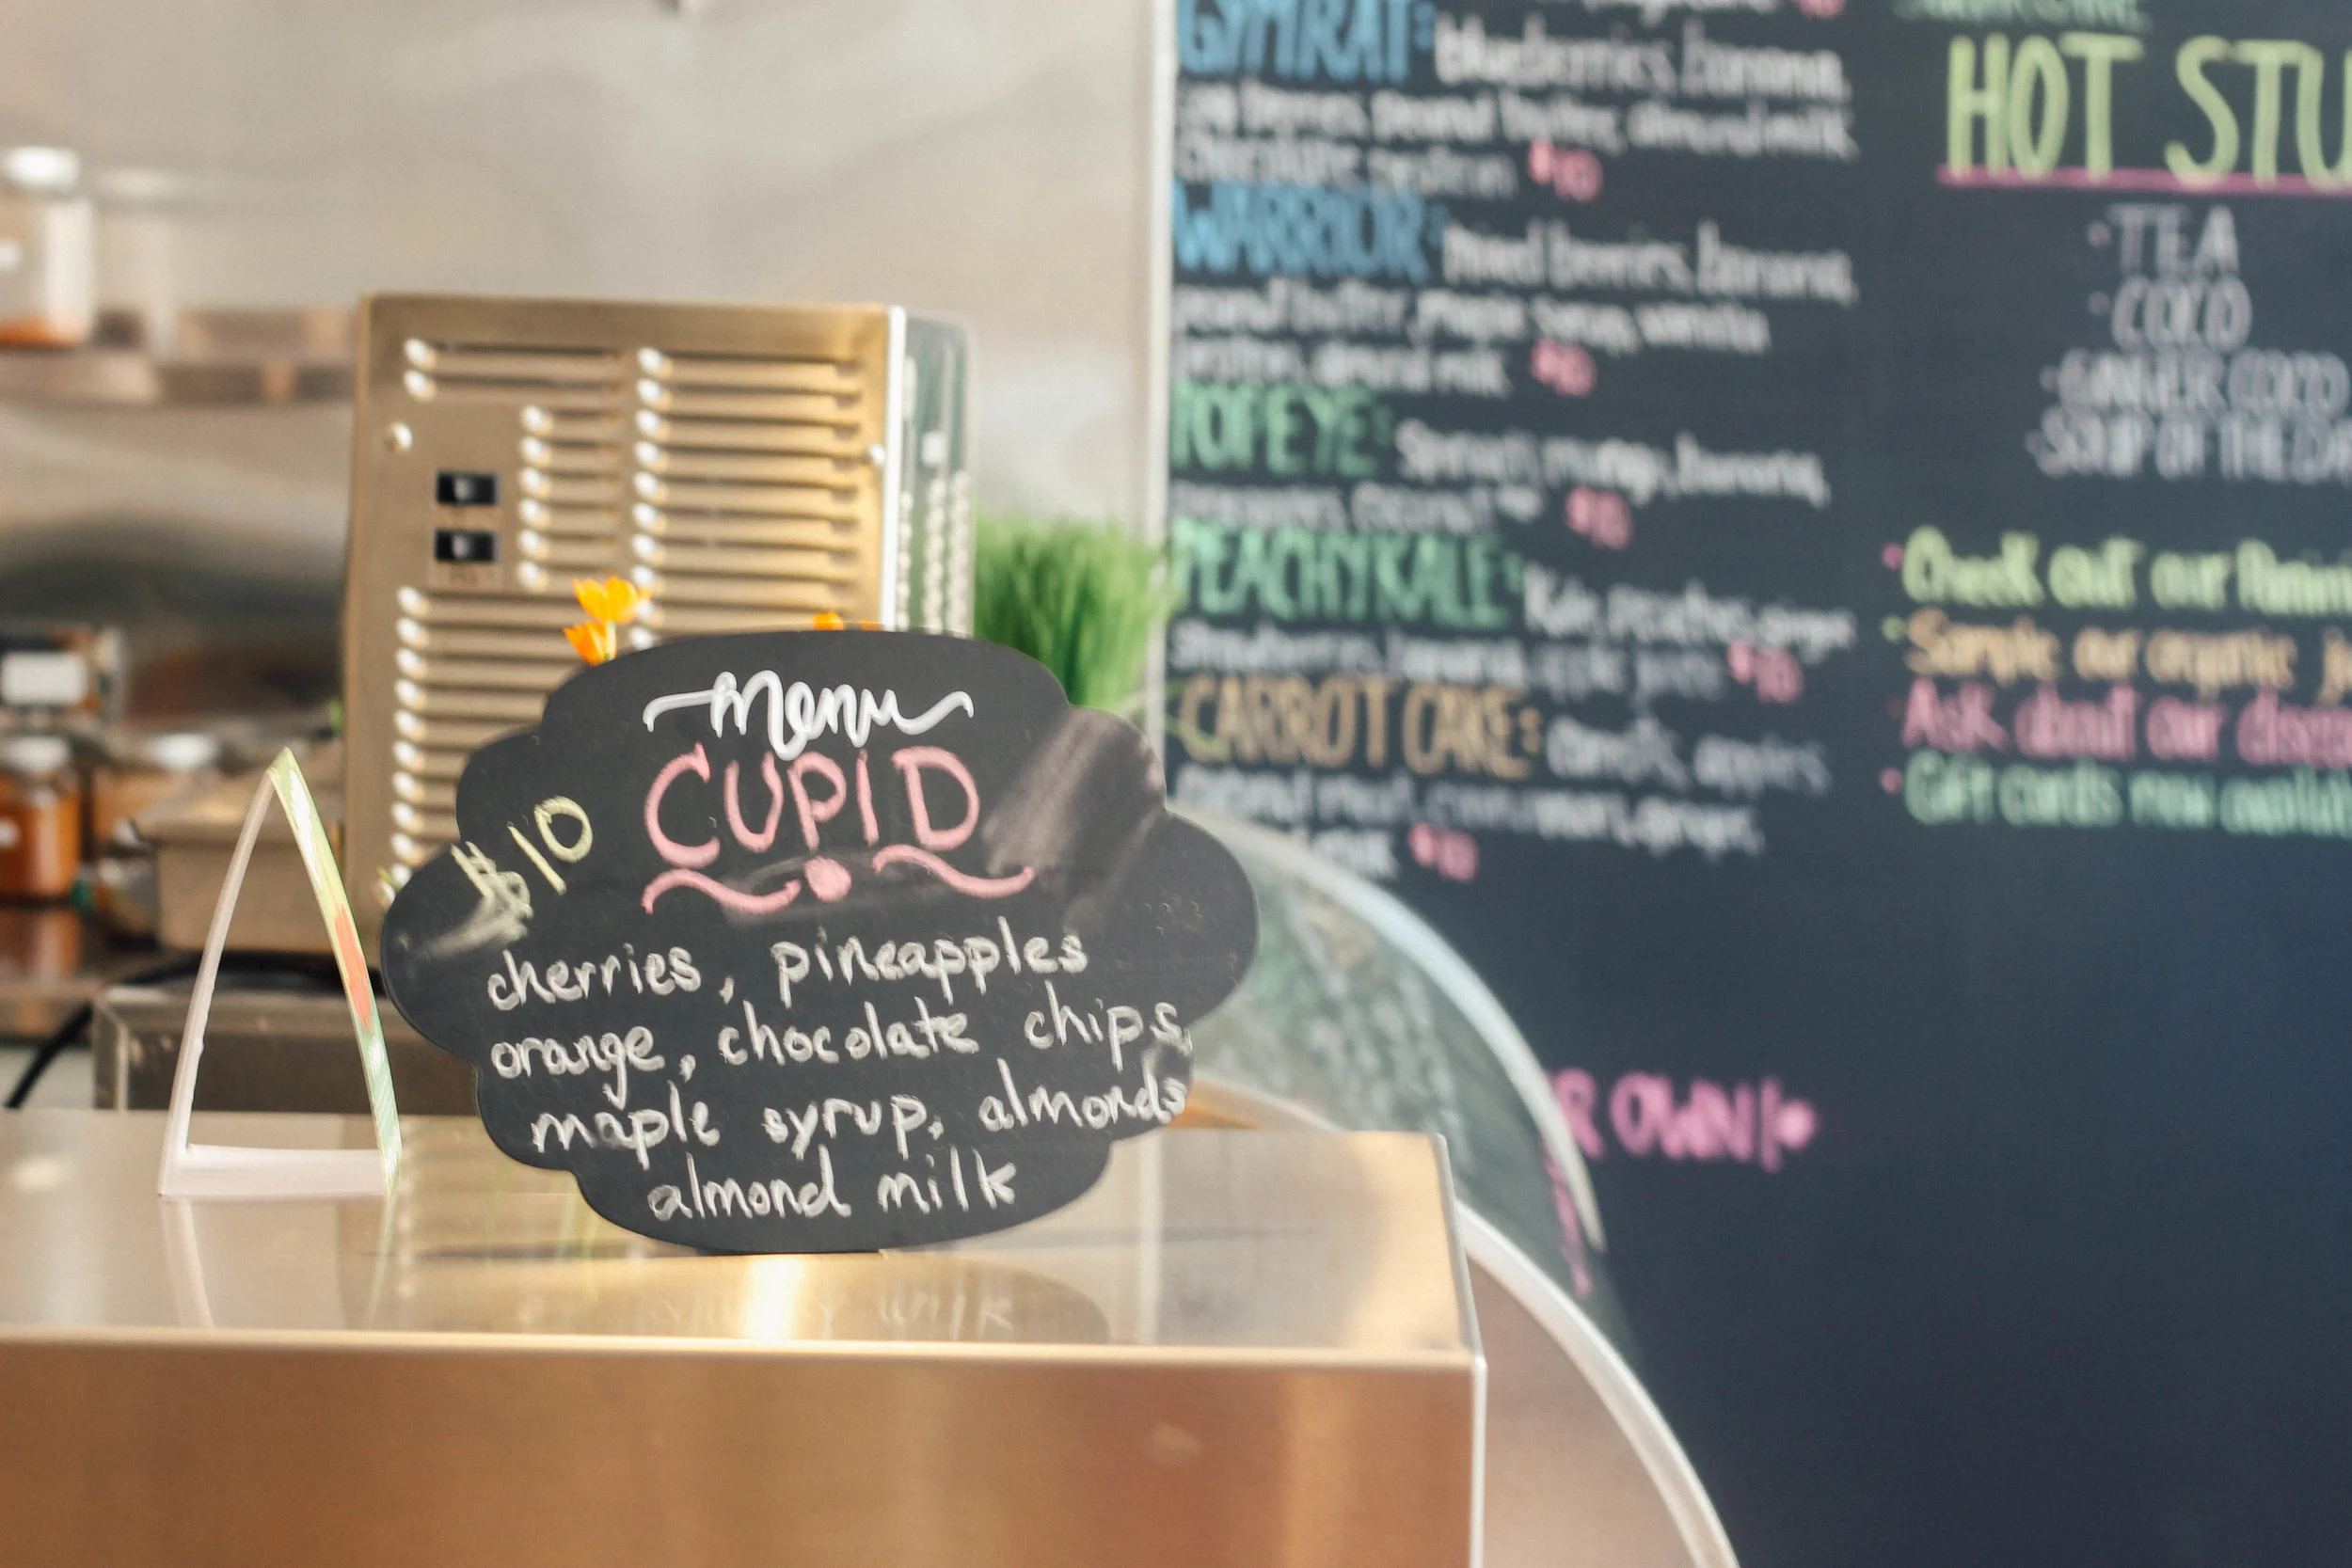 menu
CUPID
$10
cherries, pineapples
orange, chocolate chips,
maple syrup, almonds
almond milk
GYMRAT: blueberries, banana,
berries, peanut butter, almond milk,
chocolate protein $10
WARRIOR: Mixed berries, banana,
peanut butter, maple syrup, vanilla
protein, almond milk $10
POPEYE: Spinach, mango, banana,
$10
PEACHY KALE: Kale, peaches, ginger
strawberries, banana, apple juice $10
CARROT CAKE: carrots, apples
$10
HOT STU
• TEA
• COCO
• GINGER COCO
• SOUP OF THE DA
• Check out our Panini
• Sample our organic j
Ask about our
• Gift cards now availa
R OWN!